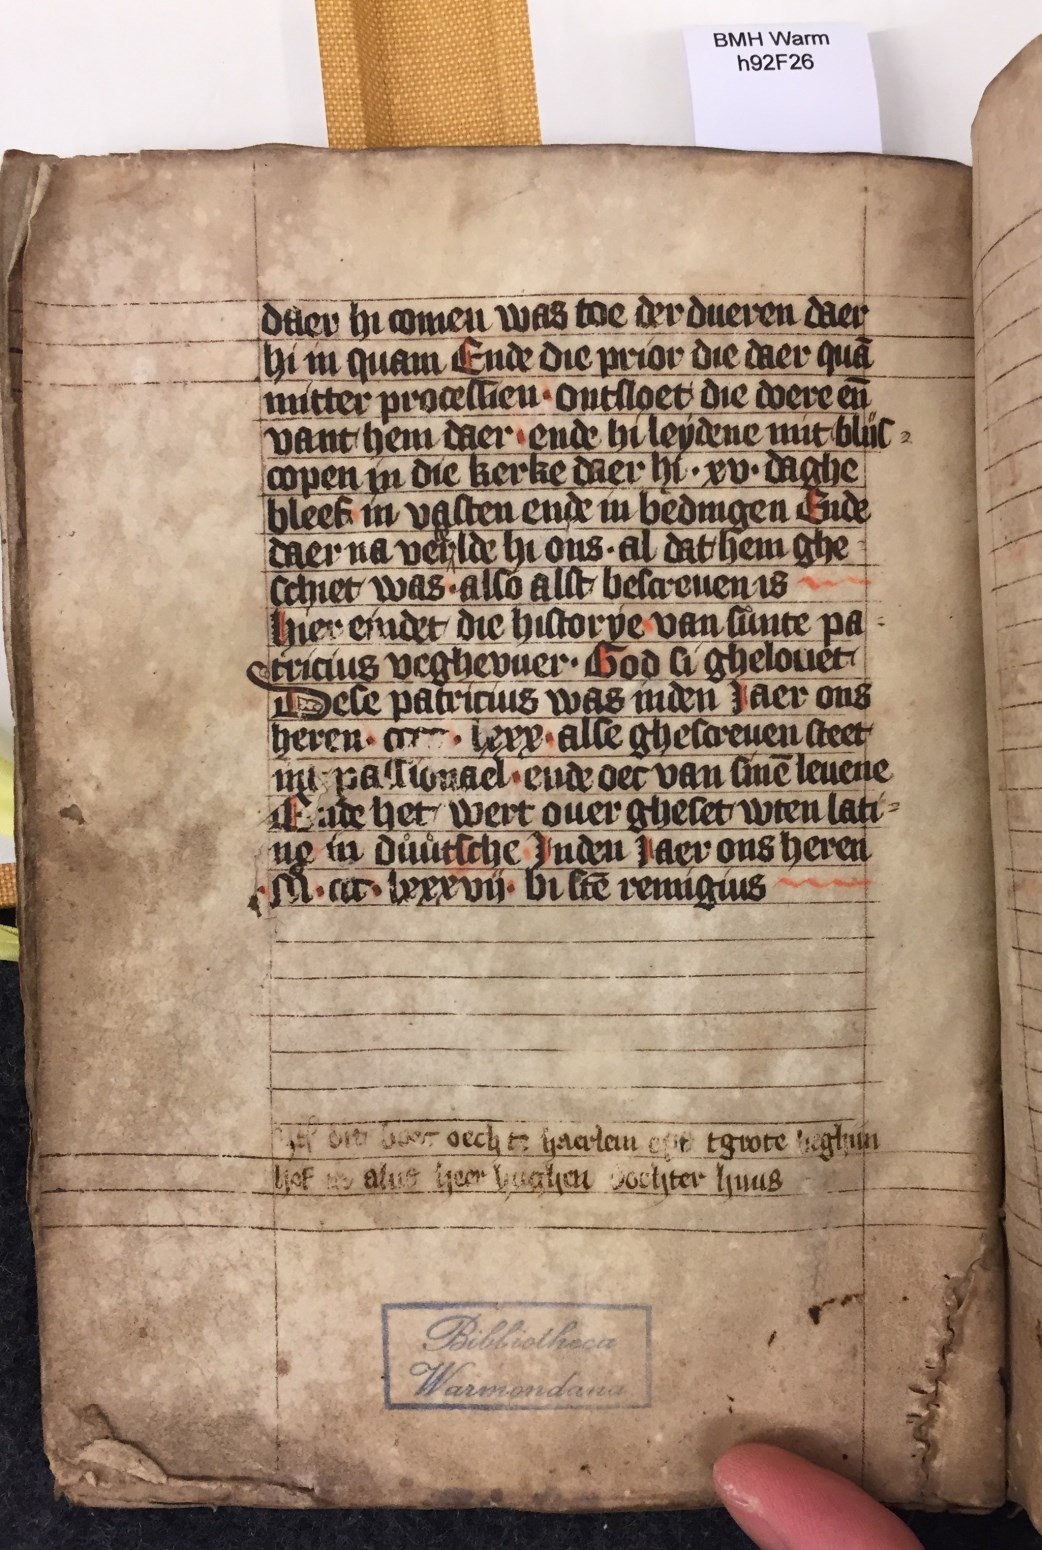 BMH Warm
h92F26
daer hi comen was toe der dueren daer
hi in quam Ende die prior die daer quā
mitter processien · ontsloet die doere en̄
vant hem daer · ende hi leydene mit blijs⸗
copen in die kerke daer hi · xv · daghe
bleef in vasten ende in bedingen Ende
daer na hi ons · al dat hem ghe
schiet was · also alst bescreuen is
hier eindet die historye van sunte pa⸗
tricius veghevuer · God si ghelouet
Dese patricius was inden Jaer ons
heren · · lxxx · alse ghescreuen steet
passionael · ende oec van sinē leuene
Ende het wert ouer gheset wten lati⸗
ne in duutsche Inden Jaer ons heren
· M · ccc · lxxxvij · bi stē remigius
oech te haerlem tgrote beghijn
hof heer hughen dochter huus
Bibliotheca
Warmondana